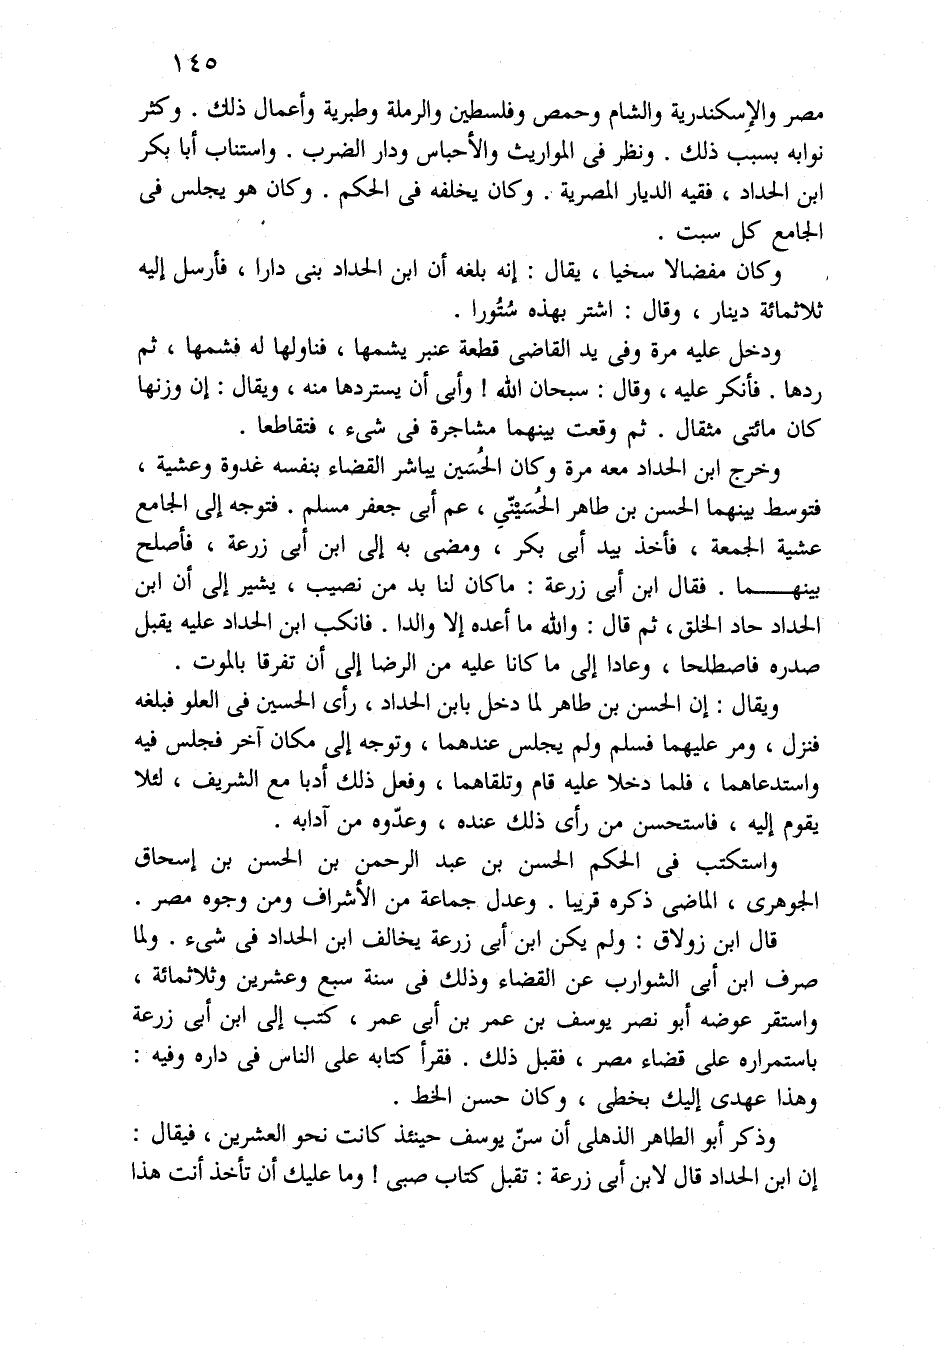 ١٤٥
مصر والإسكندرية والشام وحمص وفلسطين والرملة وطبرية وأعمال ذلك . وكثر
نوابه بسبب ذلك . ونظر فى المواريث والأحباس ودار الضرب . واستناب أبا بكر
ابن الحداد ، فقيه الديار المصرية . وكان يخلفه فى الحكم . وكان هو يجلس فى
الجامع كل سبت .
وكان مفضالا سخيا ، يقال : إنه بلغه أن ابن الحداد بنى دارا ، فأرسل إليه
ثلاثمائة دينار ، وقال : اشتر بهذه سُتُورا .
ودخل عليه مرة وفى يد القاضى قطعة عنبر يشمها ، فناولها له فشمها ، ثم
ردها . فأنكر عليه ، وقال : سبحان الله ! وأبى أن يستردها منه ، ويقال : إن وزنها
كان مائتى مثقال . ثم وقعت بينهما مشاجرة فى شىء ، فتقاطعا .
وخرج ابن الحداد معه مرة وكان الحُسَين يباشر القضاء بنفسه غدوة وعشية ،
فتوسط بينهما الحسن بن طاهر الحُسَيْنّي ، عم أبى جعفر مسلم . فتوجه إلى الجامع
عشية الجمعة ، فأخذ بيد أبى بكر ، ومضى به إلى ابن أبى زرعة ، فأصلح
بينهــــما . فقال ابن أبى زرعة : ماكان لنا بد من نصيب ، يشير إلى أن ابن
الحداد حاد الخلق، ثم قال : والله ما أعده إلا والدا . فانكب ابن الحداد عليه يقبل
صدره فاصطلحا ، وعادا إلى ما كانا عليه من الرضا إلى أن تفرقا بالموت .
ويقال : إن الحسن بن طاهر لما دخل بابن الحداد ، رأى الحسين فى العلو فبلغه
فنزل ، ومر عليهما فسلم ولم يجلس عندهما ، وتوجه إلى مكان آخر فجلس فيه
واستدعاهما ، فلما دخلا عليه قام وتلقاهما ، وفعل ذلك أدبا مع الشريف ، لئلا
يقوم إليه ، فاستحسن من رأى ذلك عنده ، وعدّوه من آدابه .
واستكتب فى الحكم الحسن بن عبد الرحمن بن الحسن بن إسحاق
الجوهرى ، الماضى ذكره قريبا . وعدل جماعة من الأشراف ومن وجوه مصر .
قال ابن زولاق : ولم يكن ابن أبى زرعة يخالف ابن الحداد فى شىء . ولما
صرف ابن أبى الشوارب عن القضاء وذلك فى سنة سبع وعشرين وثلاثمائة ،
واستقر عوضه أبو نصر يوسف بن عمر بن أبى عمر ، كتب إلى ابن أبى زرعة
باستمراره على قضاء مصر ، فقبل ذلك . فقرأ كتابه على الناس فى داره وفيه :
وهذا عهدى إليك بخطى ، وكان حسن الخط .
وذكر أبو الطاهر الذهلى أن سنّ يوسف حينئذ كانت نحو العشرين ، فيقال :
إن ابن الحداد قال لابن أبى زرعة : تقبل كتاب صبى ! وما عليك أن تأخذ أنت هذا